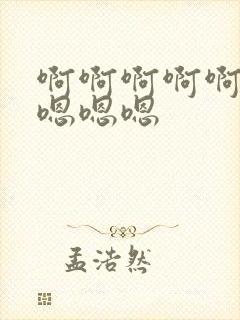 啊啊啊啊啊
嗯嗯嗯
孟浩然